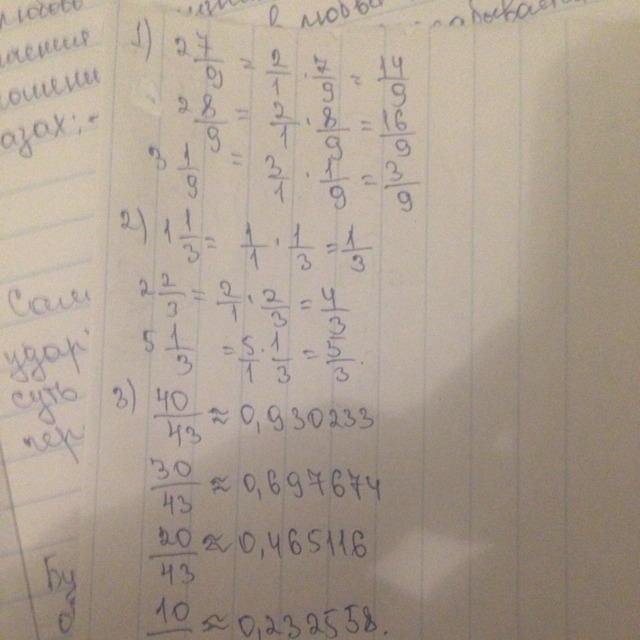 в любви
1) 2 7/9 = 2/1 · 7/9 = 14/9
2 8/9 = 2/1 · 8/9 = 16/9
3 1/9 = 3/1 · 1/9 = 3/9
2) 1 1/3 = 1/1 · 1/3 = 1/3
2 2/3 = 2/1 · 2/3 = 4/3
5 1/3 = 5/1 · 1/3 = 5/3.
3) 40/43 ≈ 0,930233
30/43 ≈ 0,697674
20/43 ≈ 0,465116
10 ≈ 0,232558.
азах:-
Сам
удар
пер
Бу